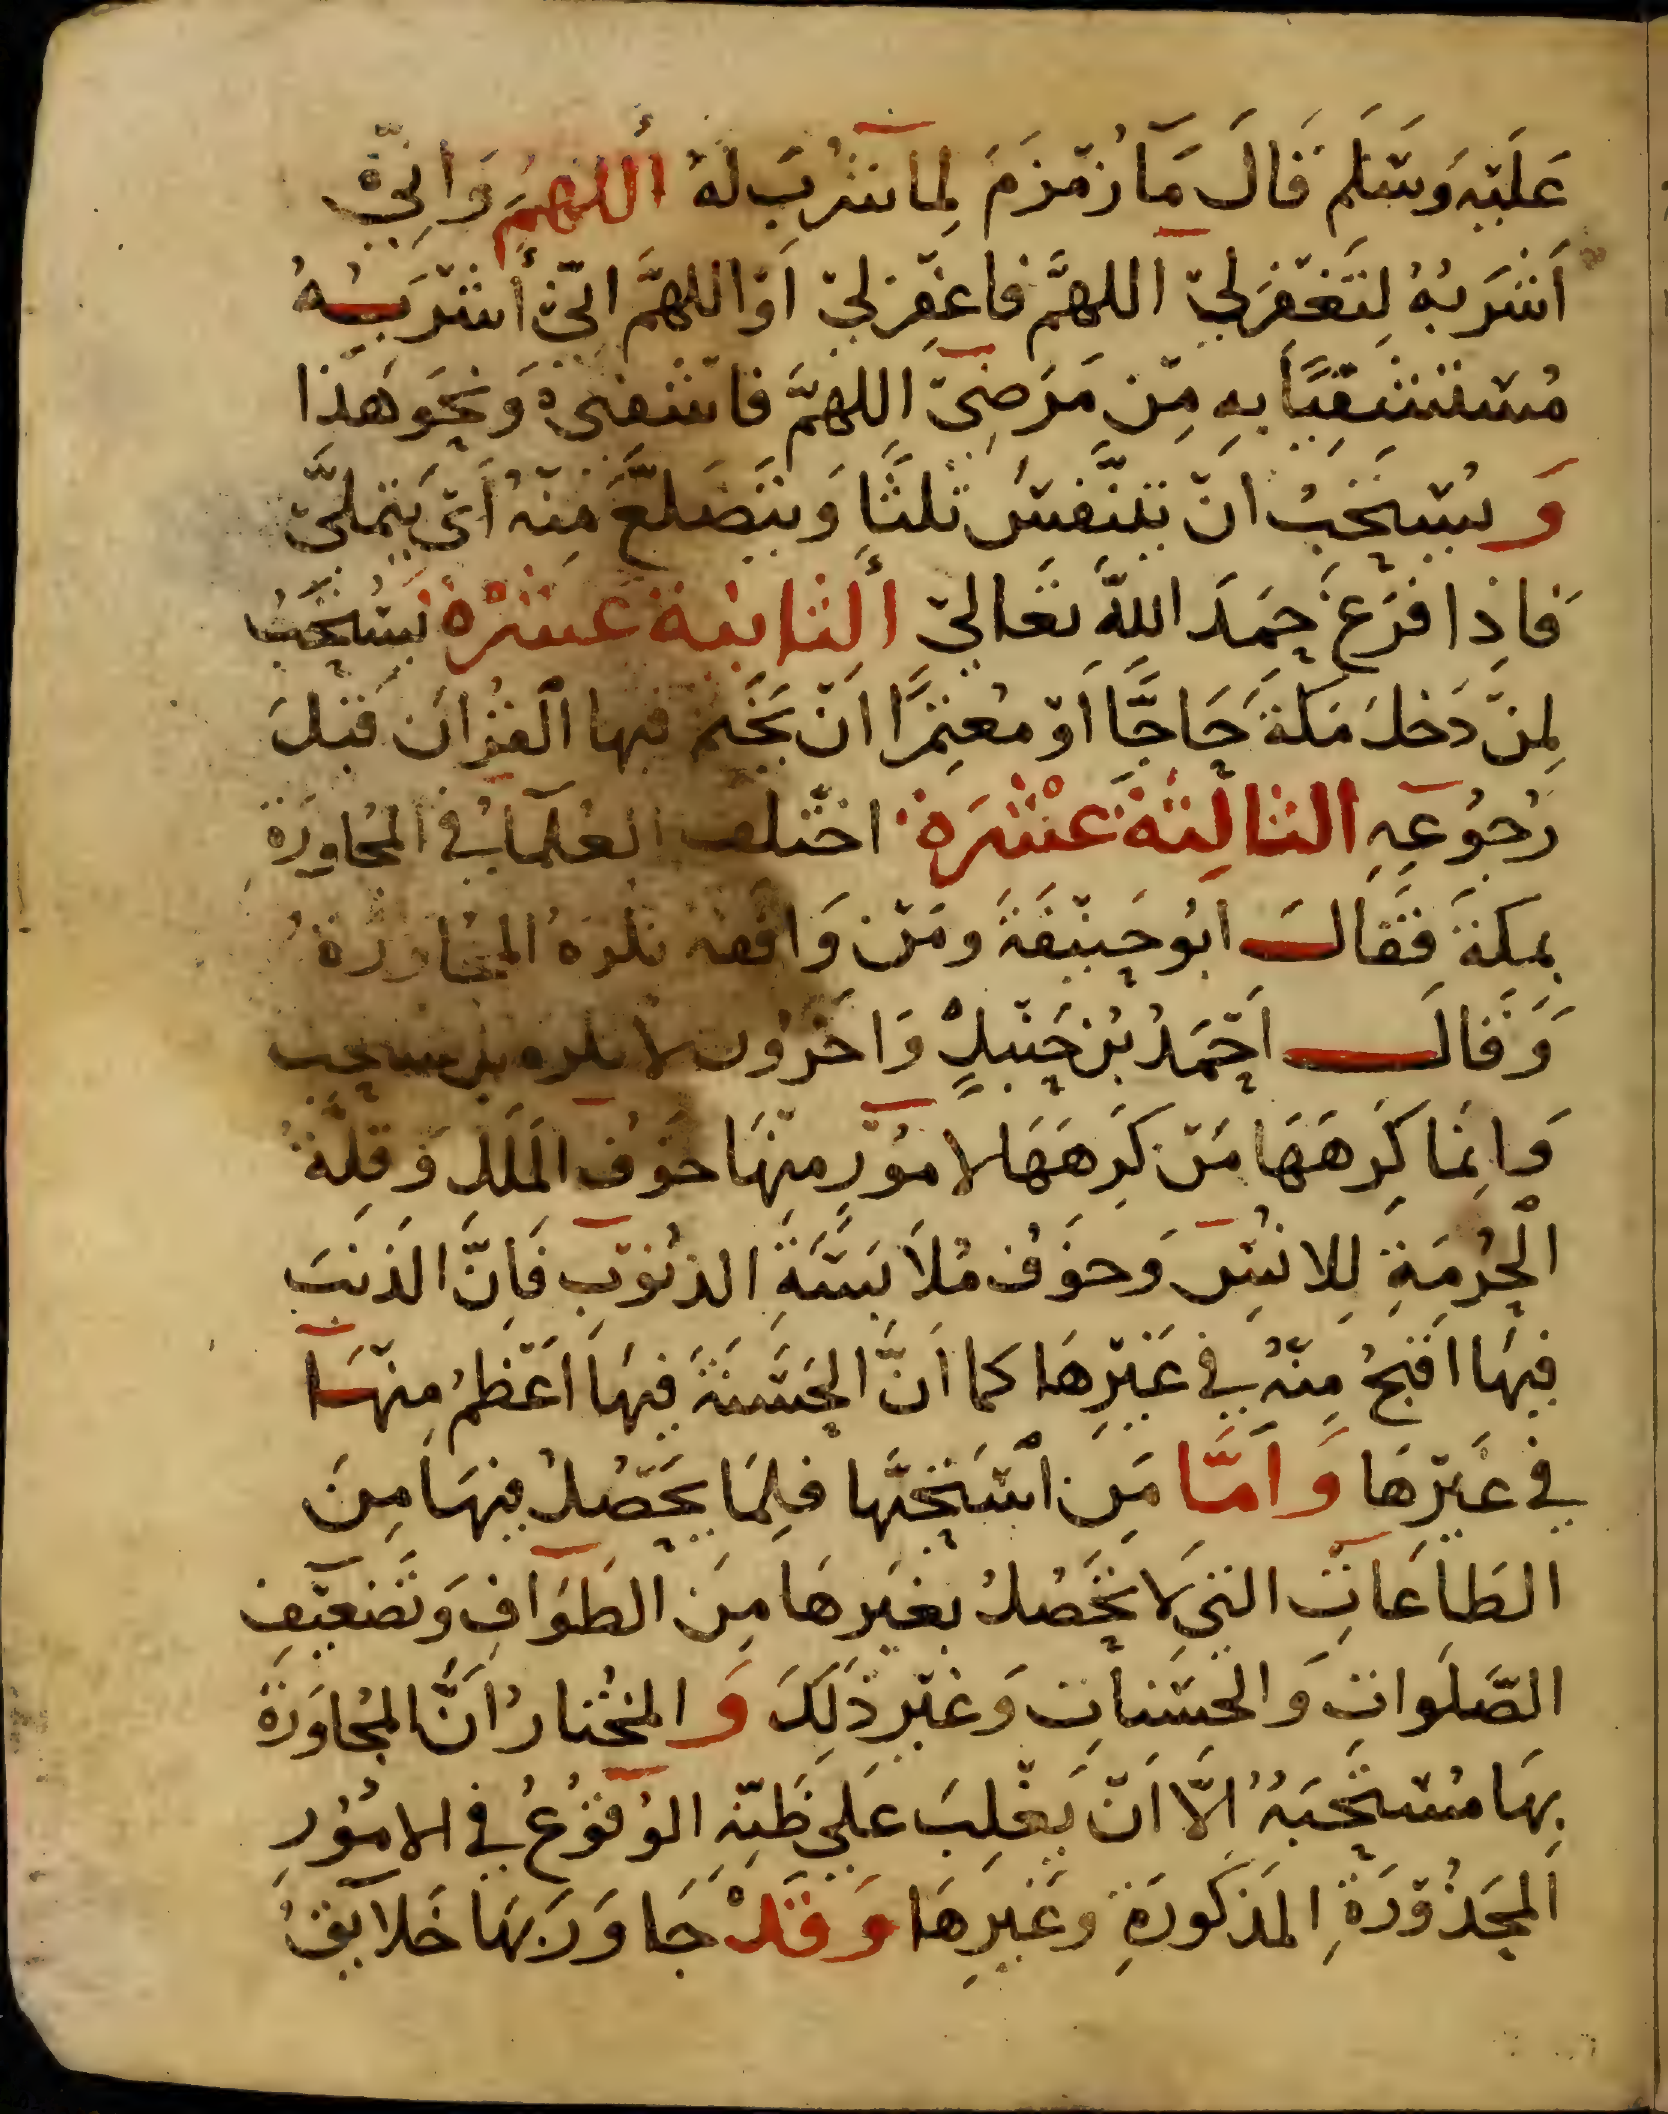 عَلَيْهِ وَسَلَّم قَالَ مَآ زَمْزَمَ لِمَا شُرِبَ لَهُ أللهُمَّ وَإِنِّيْ
أَشْرَبُهُ لِتَغْفِرَلِيْ اللهمَّ فاغْفِرْلِيْ اَوْ اللهمَّ انِّيْ أشْرَبُهُ
مُسْتَشْفِيًا بِهِ مِنْ مَرَضِيْ اللهمَّ فاشْفِنِيْ وَنَحْوَ هَذَا
وَيُسْتَحَبُ انْ يَتَنَفَّسَ ثَلثًا وَيَتَضَلَّعَ مِنْهُ أَيْ يَتَمَلَّىْ
فَاذِا فَرَغَ حَمِدَ اللهَ تَعَاليْ ألثانية عَشْرَة يُسْتَحَبُ
لِمَنْ دَخَلَ مَكَةَ حَاجًّا اَوْ مُعْتَمِرًا اَنْ يَخْتِم فيها الْقُرْاَنَ قَبْلَ
رُجُوْعِهِ الثالِثَة عَشْرَة اختَلَف العُلَمَآءُ في المُجَاوَرَة
بمكة فَقَالَ ابُو حَنِيْفَةَ وَمَنْ وَافقه تكره المجاورة
وَقَالَ احْمَدُ بْنُ حَنْبَلٍ وَاخَرُون لا تكره بل تستحب
وَاِنَّمَا كَرِهَهَا مَنْ كَرِهَهَا لامُوْرٍ مِنْهَا خَوْفُ المَلَلِ وَقِلَّةُ
الْحُرْمَةِ لِلانْسِ وَخَوْفُ مُلَابَسَةِ الذنُوْبِ فَاِنَّ الذَنبَ
فِيْهَا اقبَحُ مِنْهُ فِي غَيْرِهَا كما اَنَّ الحَسَنَةَ فِيهَا اَعْظَمُ مِنْهَا
فِي غَيْرِهَا وَاَمَّا مَن اسْتَحَبَّها فلِمَا يَحْصُلُ فِيهَا مِنَ
الطَاعَاتِ التي لَا تَحْصُلُ بغَيرِهَا مِنَ الطَوَافِ وَتَضْعِيْفِ
الصَّلَوَاتِ وَالحسَنَاتِ وَغَيْرِ ذَلِكَ وَالمُختارُ اَنَّ المجُاوَرَة
بِهَا مُسْتَحَبَةُ اِلَّا اَنْ يَغْلِبَ عَلَي ظَنِّهِ الوُقوْعُ في الامُوْرِ
المحَذُوْرَةِ المَذكُورَةِ وَغَيرِهَا وَقَدْ جَاوَرَ بهَا خَلايِقُ